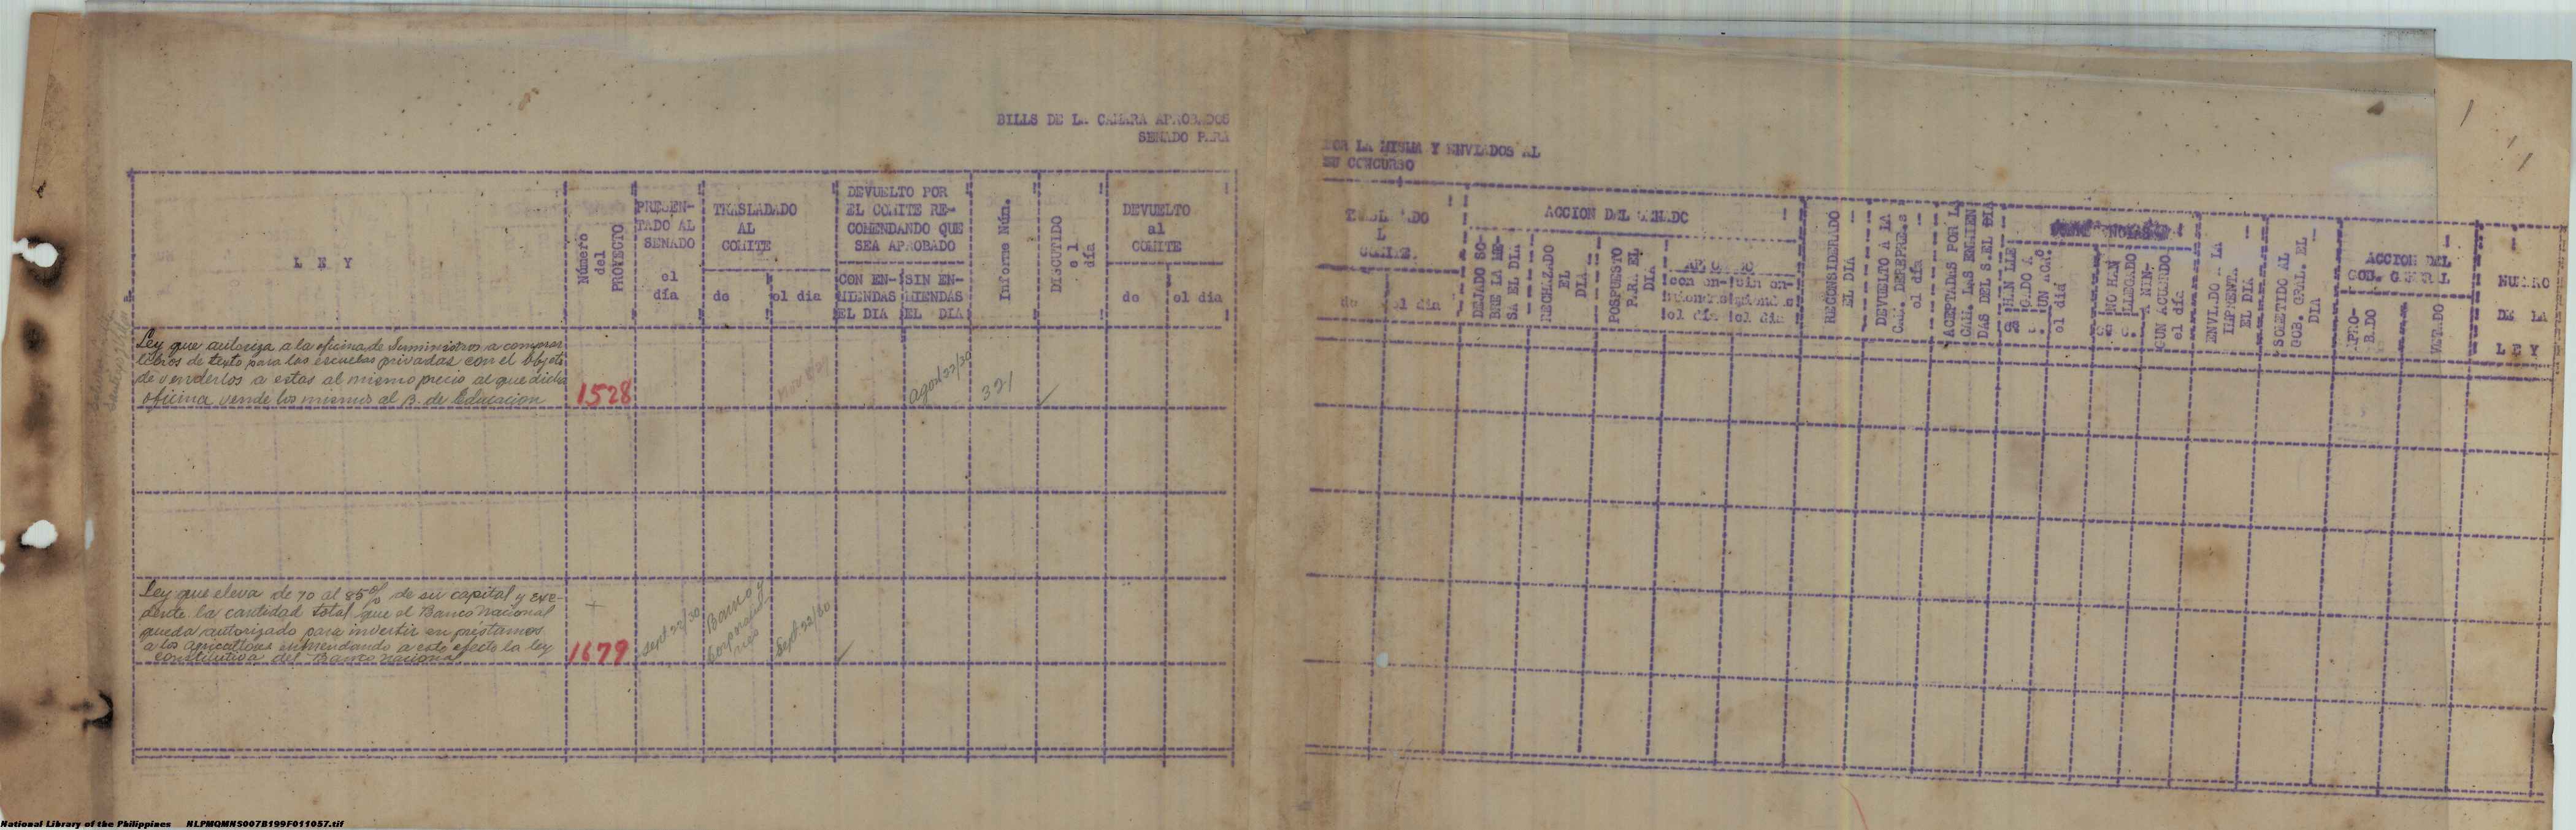 BILLS DE LA CAMARA APROBADOS
SENADO PARA
POR LA MISMA Y ENVIADOS AL
SU CONCURSO
L E Y
Número
del
PROYECTO
PRESEN-
TADO AL
SENADO
el
día
TRASLADADO
AL
COMITE
de
el dia
DEVUELTO POR
EL COMITE RE-
COMENDANDO QUE
SEA APROBADO
CON EN-
MIENDAS
EL DIA
SIN EN-
MIENDAS
EL DIA
Informe Núm.
DISCUTIDO
el
día
DEVUELTO
al
COMITE
de
el dia
COMITE.
de
el dia
ACCION DEL SENADO
DEJADO SO-
BRE LA ME-
SA EL DIA
RECHAZADO
EL
DIA
POSPUESTO
PARA EL
DIA
con en-
miendas
el día
sin en-
miendas
el dia
RECONSIDERADO
EL DIA
DEVUELTO A LA
CAM. DEREPRE.s
el día
ACEPTADAS POR LA
CAM. LAS ENMIEN
DAS DEL S.EL DIA
HAN LLE
GADO A
UN ACA.º
el día
NO HAN
LLEGADO
A NIN-
GUN ACUERDO
el día
ENVIADO A LA
IMPRENTA
EL DIA
SOMETIDO AL
GOB. GRAL. EL
DIA
ACCION DEL
GOB. GENERAL
APRO-
BADO
VETADO
NUMERO
DE LA
L E Y
Ley que autoriza a la oficina de Suministros a comprar
libros de texto para las escuelas privadas con el objeto
de venderlos a estas al mismo precio al que dicha
oficina vende los mismos al B. de Educacion
1528
Agos 22/30
321
Ley que eleva de 70 al 85% de su capital y exce-
dente la cantidad total que el Banco Nacional
queda autorizado para invertir en préstamos
a los agricultores enmendando a este efecto la ley
constitutiva del Banco Nacional
1679
Sept 22/30
Banco y
Corporacio
nes
Sept 22/30
National Library of the Philippines NLPMQMNS007B199F011057.tif